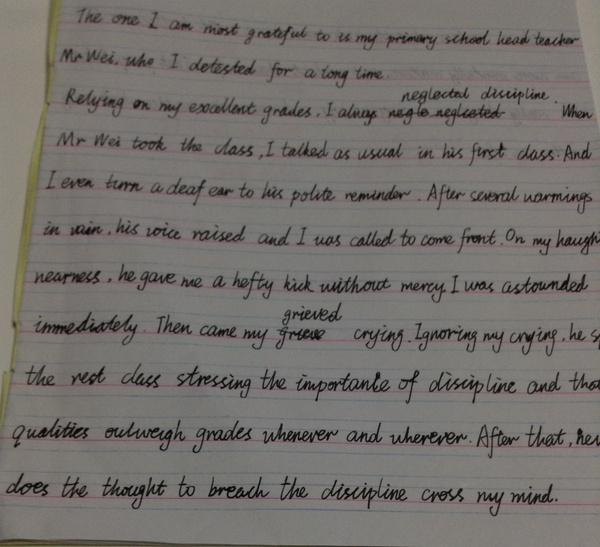 The one I am most grateful to is my primary school head teacher
Mr Wei, who I detested for a long time.
Relying on my excellent grades, I always neglected discipline. When
Mr Wei took the class, I talked as usual in his first class. And
I even turn a deaf ear to his polite reminder. After several warmings
in vain, his voice raised and I was called to come front. On my
nearness, he gave me a hefty kick without mercy. I was astounded
immediately. Then came my grieved crying. Ignoring my crying, he
the rest class stressing the importance of discipline and
qualities outweigh grades whenever and wherever. After that,
does the thought to breach the discipline cross my mind.